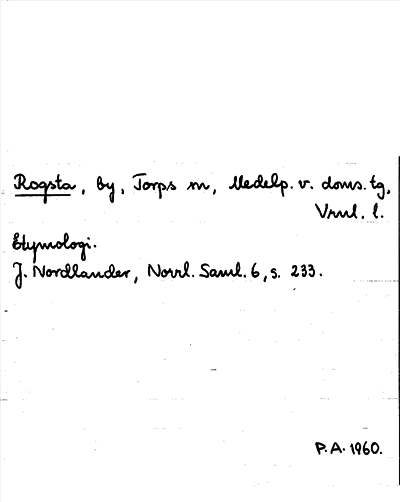 Rogsta, by, Torps sn, Medelp. v. doms. tg,
Vrnl. l.
Etymologi.
J. Nordlander, Norrl. Saml. 6, s. 233.
P.A. 1960.